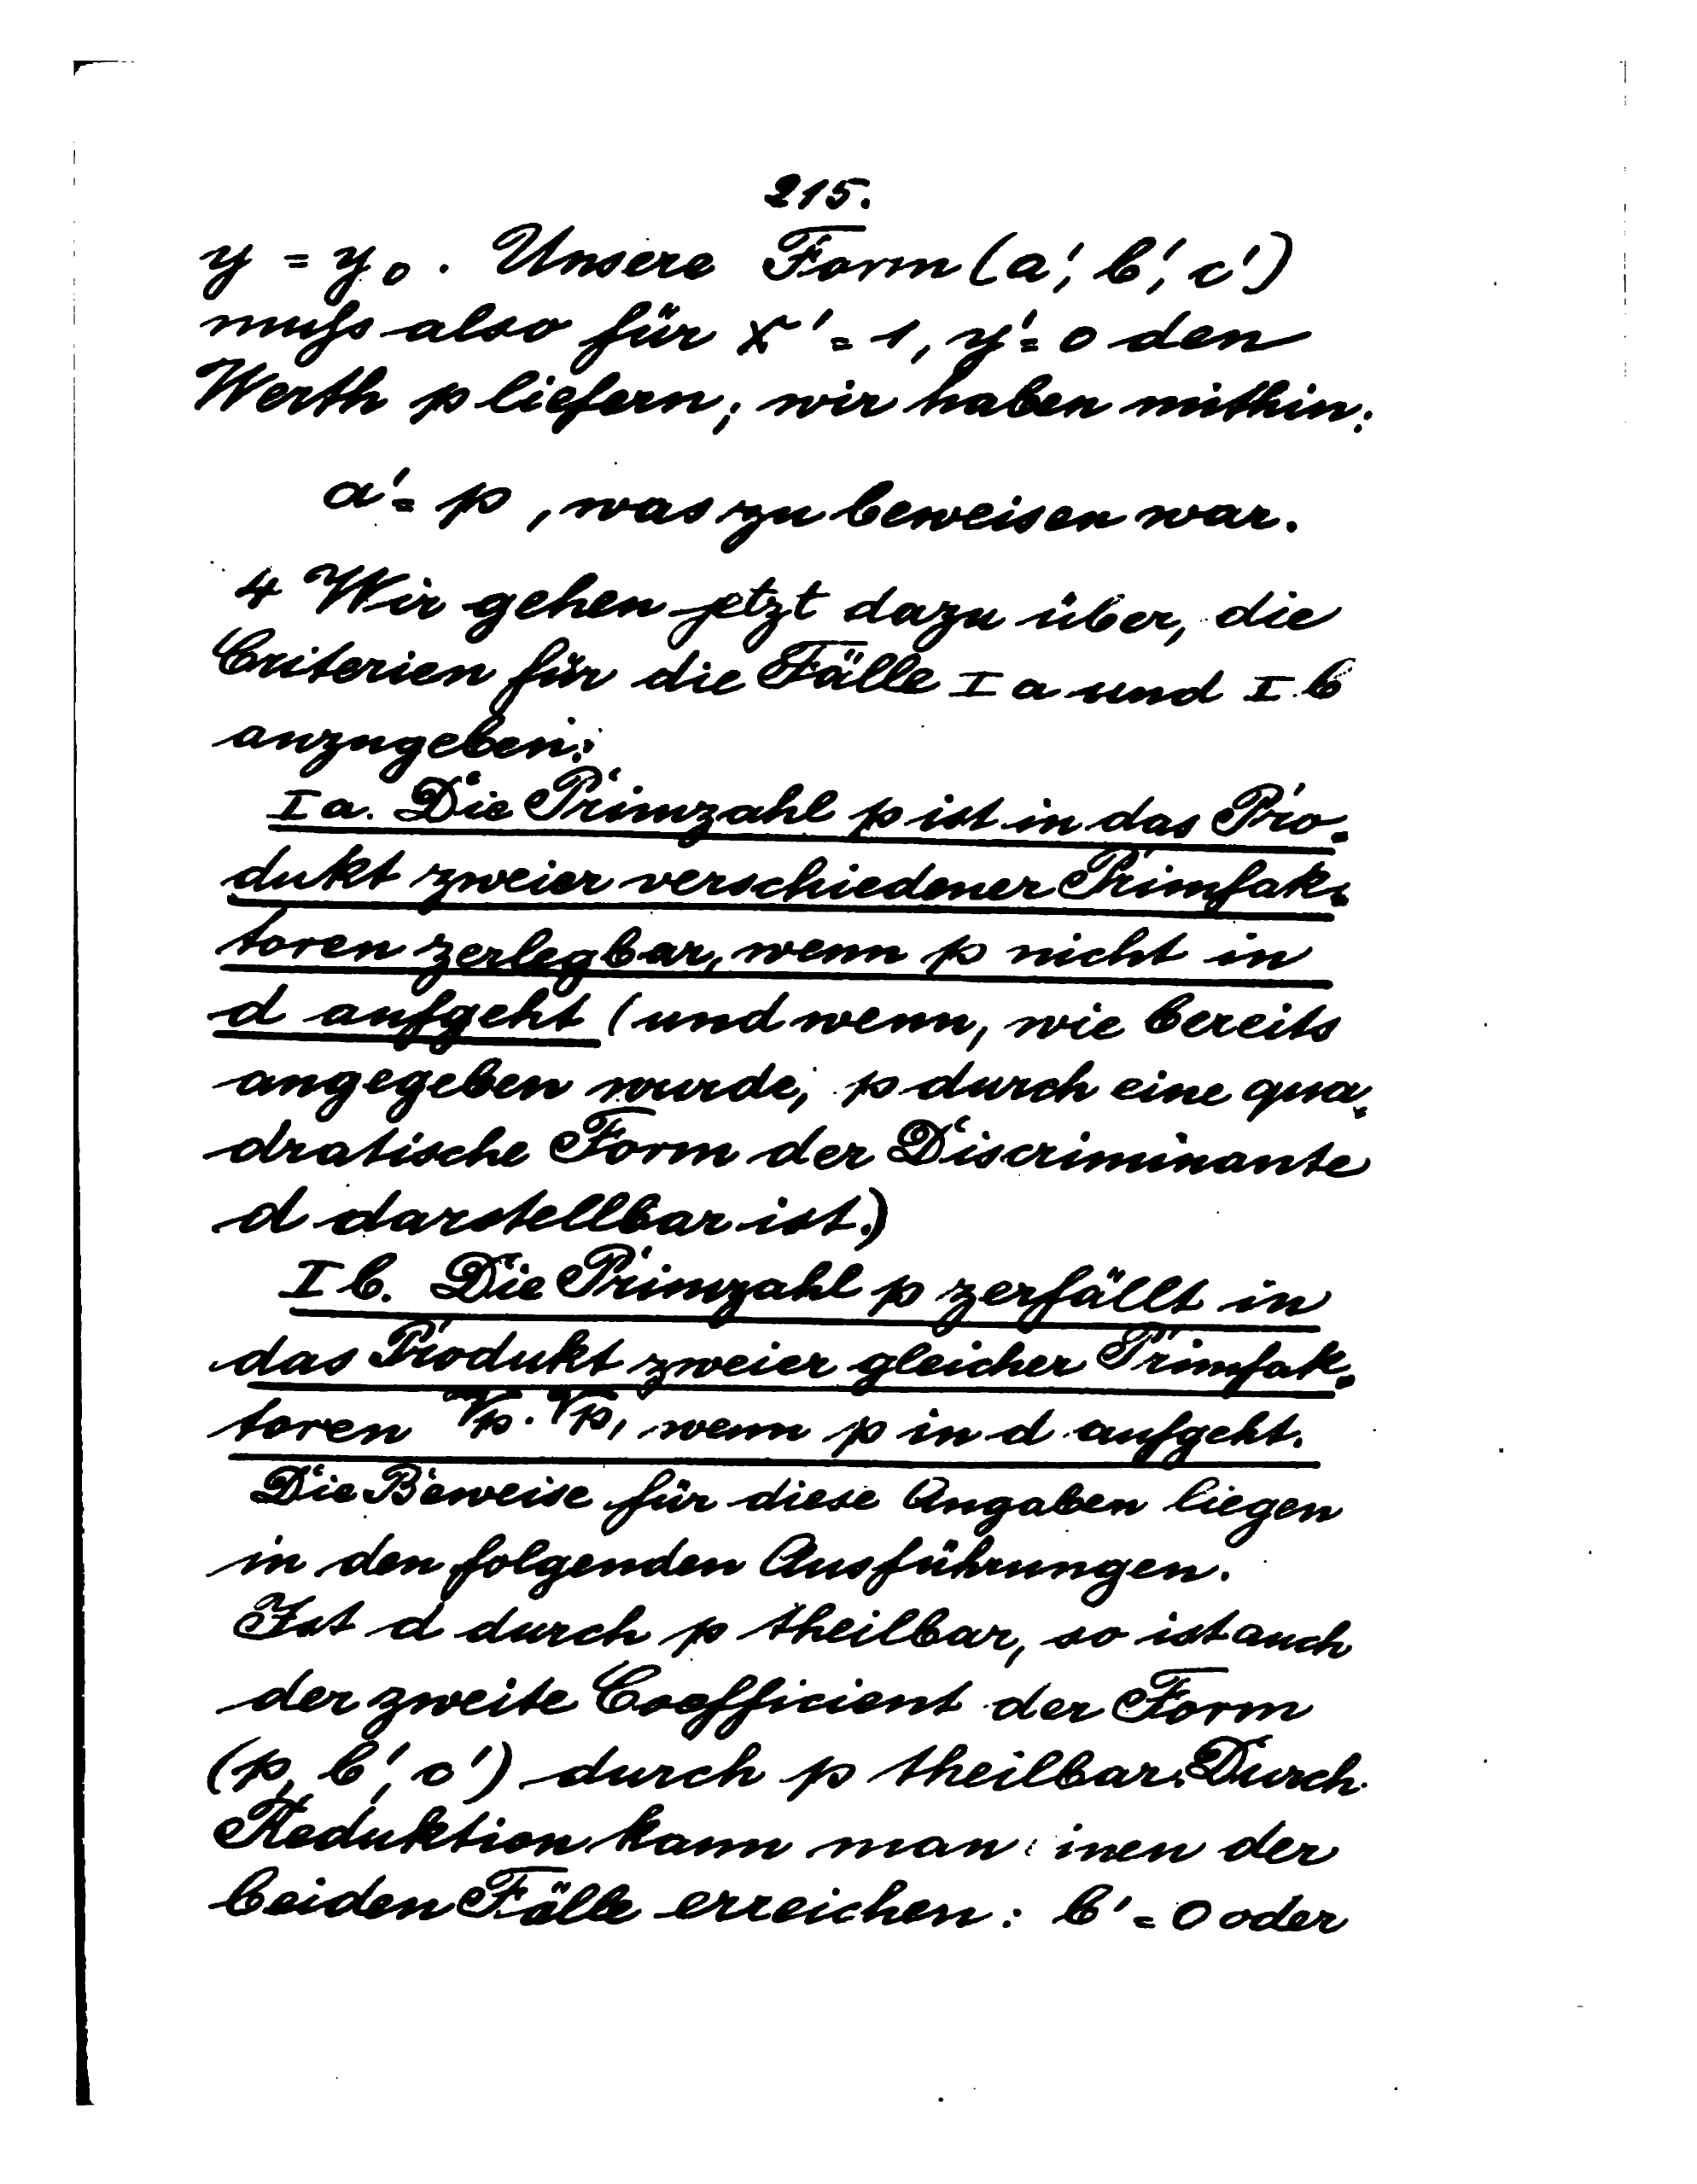 215.
y = y₀. Unsere Form (a', b', c')
muſs also für x' = 1, y' = 0 den
Werth p liefern; wir haben mithin:
a' = p, was zu beweisen war.
4 Wir gehen jetzt dazu über, die
Criterien für die Fälle I a und I b
anzugeben:
I a. Die Primzahl p ist in das Pro-
dukt zweier verschiedener Primfak-
toren zerlegbar, wenn p nicht in
d aufgeht (und wenn, wie bereits
angegeben wurde, p durch eine qua-
dratische Form der Discriminante
d darstellbar ist.)
I b. Die Primzahl p zerfällt in
das Produkt zweier gleicher Primfak-
toren √p · √p, wenn p in d aufgeht.
Die Beweise für diese Angaben liegen
in den folgenden Ausführungen.
Ist d durch p theilbar, so ist auch
der zweite Coefficient der Form
(p, b', c') durch p theilbar. Durch
Reduktion kann man inen der
beiden Fälle erreichen: b' = 0 oder